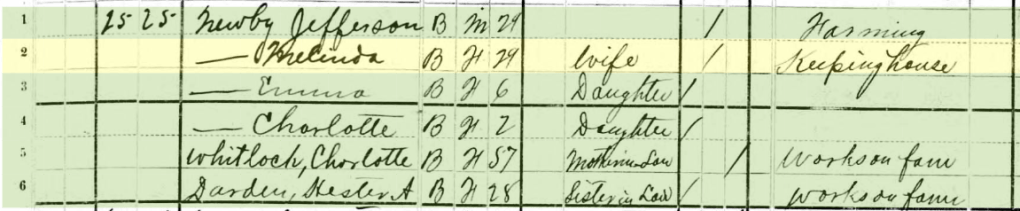 1 25 25 Newby Jefferson B M 29 / Farming
2 — Melinda B F 29 Wife / Keeping house
3 — Emma B F 6 Daughter /
4 — Charlotte B F 2 Daughter /
5 Whitloch, Charlotte B F 57 Mother in Law / Works on fam
6 Darden, Hester A B F 28 Sister in Law / Works on fam